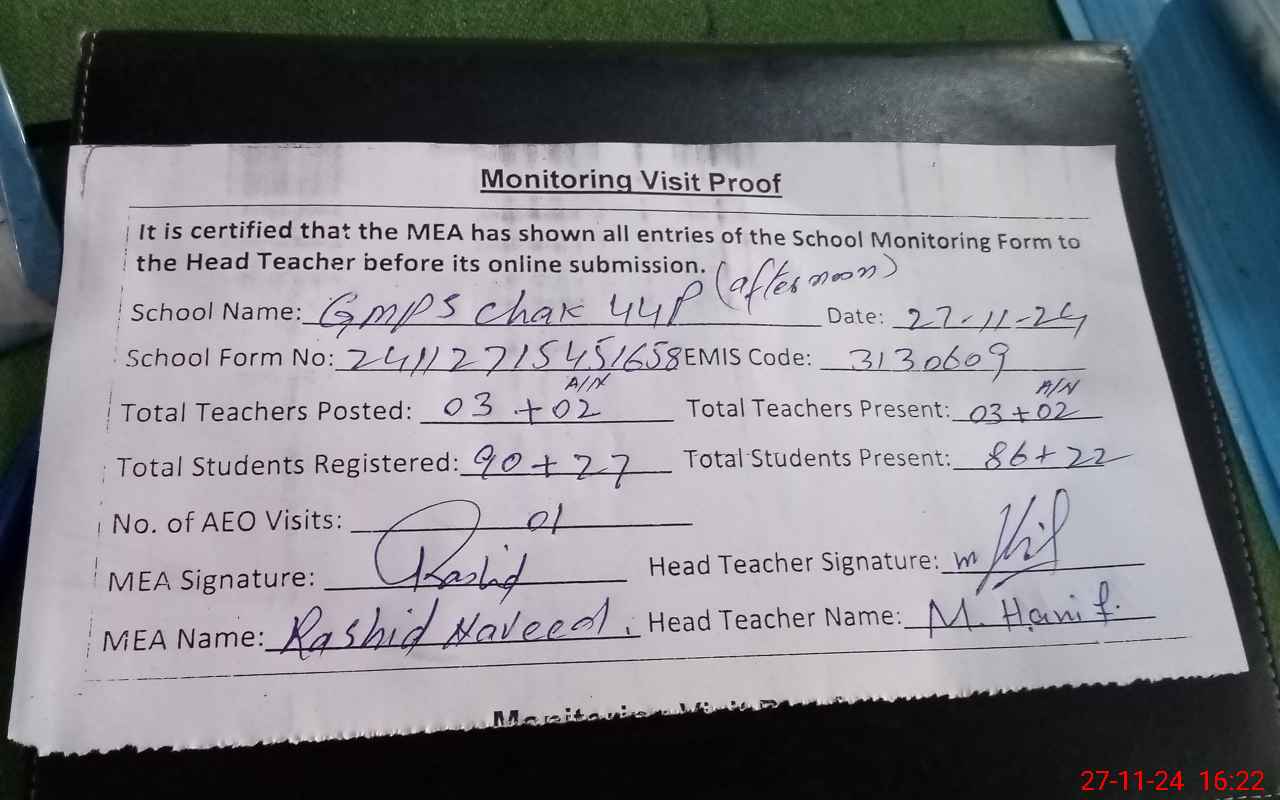 Monitoring Visit Proof
It is certified that the MEA has shown all entries of the School Monitoring Form to
the Head Teacher before its online submission.
School Name: GMPS Chak 44P (afternoon) Date: 27-11-24
School Form No: 24112715451658 EMIS Code: 3130609
A/N A/N
Total Teachers Posted: 03 + 02 Total Teachers Present: 03 + 02
Total Students Registered: 90 + 27 Total Students Present: 86 + 22
No. of AEO Visits: 01
MEA Signature: Rashid Head Teacher Signature:
MEA Name: Rashid Naveed. Head Teacher Name: M. Hanif.
Monitoring Visit Proof
27-11-24 16:22